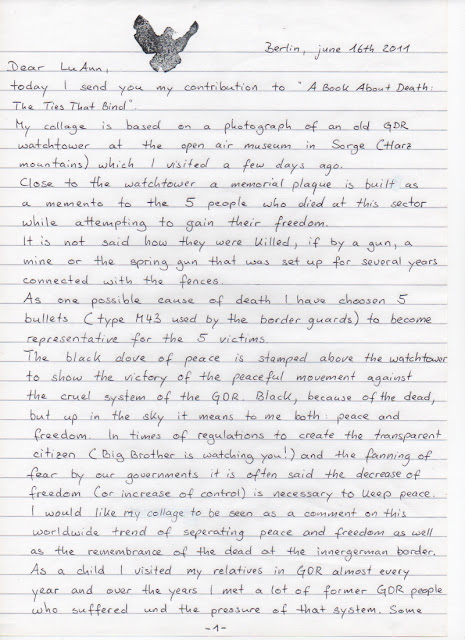 Berlin, june 16th 2011
Dear LuAnn,
today I send you my contribution to "A Book About Death:
The Ties That Bind".
My collage is based on a photograph of an old GDR
watchtower at the open air museum in Sorge (Harz
mountains) which I visited a few days ago.
Close to the watchtower a memorial plaque is built as
a memento to the 5 people who died at this sector
while attempting to gain their freedom.
It is not said how they were killed, if by a gun, a
mine or the spring gun that was set up for several years
connected with the fences.
As one possible cause of death I have choosen 5
bullets (type M43 used by the border guards) to become
representative for the 5 victims.
The black dove of peace is stamped above the watchtower
to show the victory of the peaceful movement against
the cruel system of the GDR. Black, because of the dead,
but up in the sky it means to me both: peace and
freedom. In times of regulations to create the transparent
citizen (Big Brother is watching you!) and the fanning of
fear by our governments it is often said the decrease of
freedom (or increase of control) is necessary to keep peace.
I would like my collage to be seen as a comment on this
worldwide trend of seperating peace and freedom as well
as the remembrance of the dead at the innergerman border.
As a child I visited my relatives in GDR almost every
year and over the years I met a lot of former GDR people
who suffered und the pressure of that system. Some
-1-